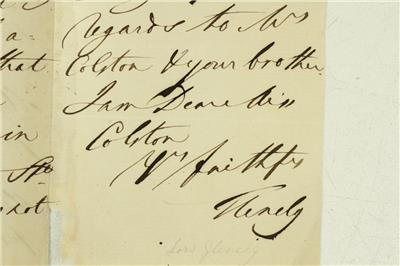 regards to Mrs
Colston & your brother.
I am Dear Miss
Colston
Yrs faithfy
Glenelg
Lord Glenelg
a-
that
in
shot